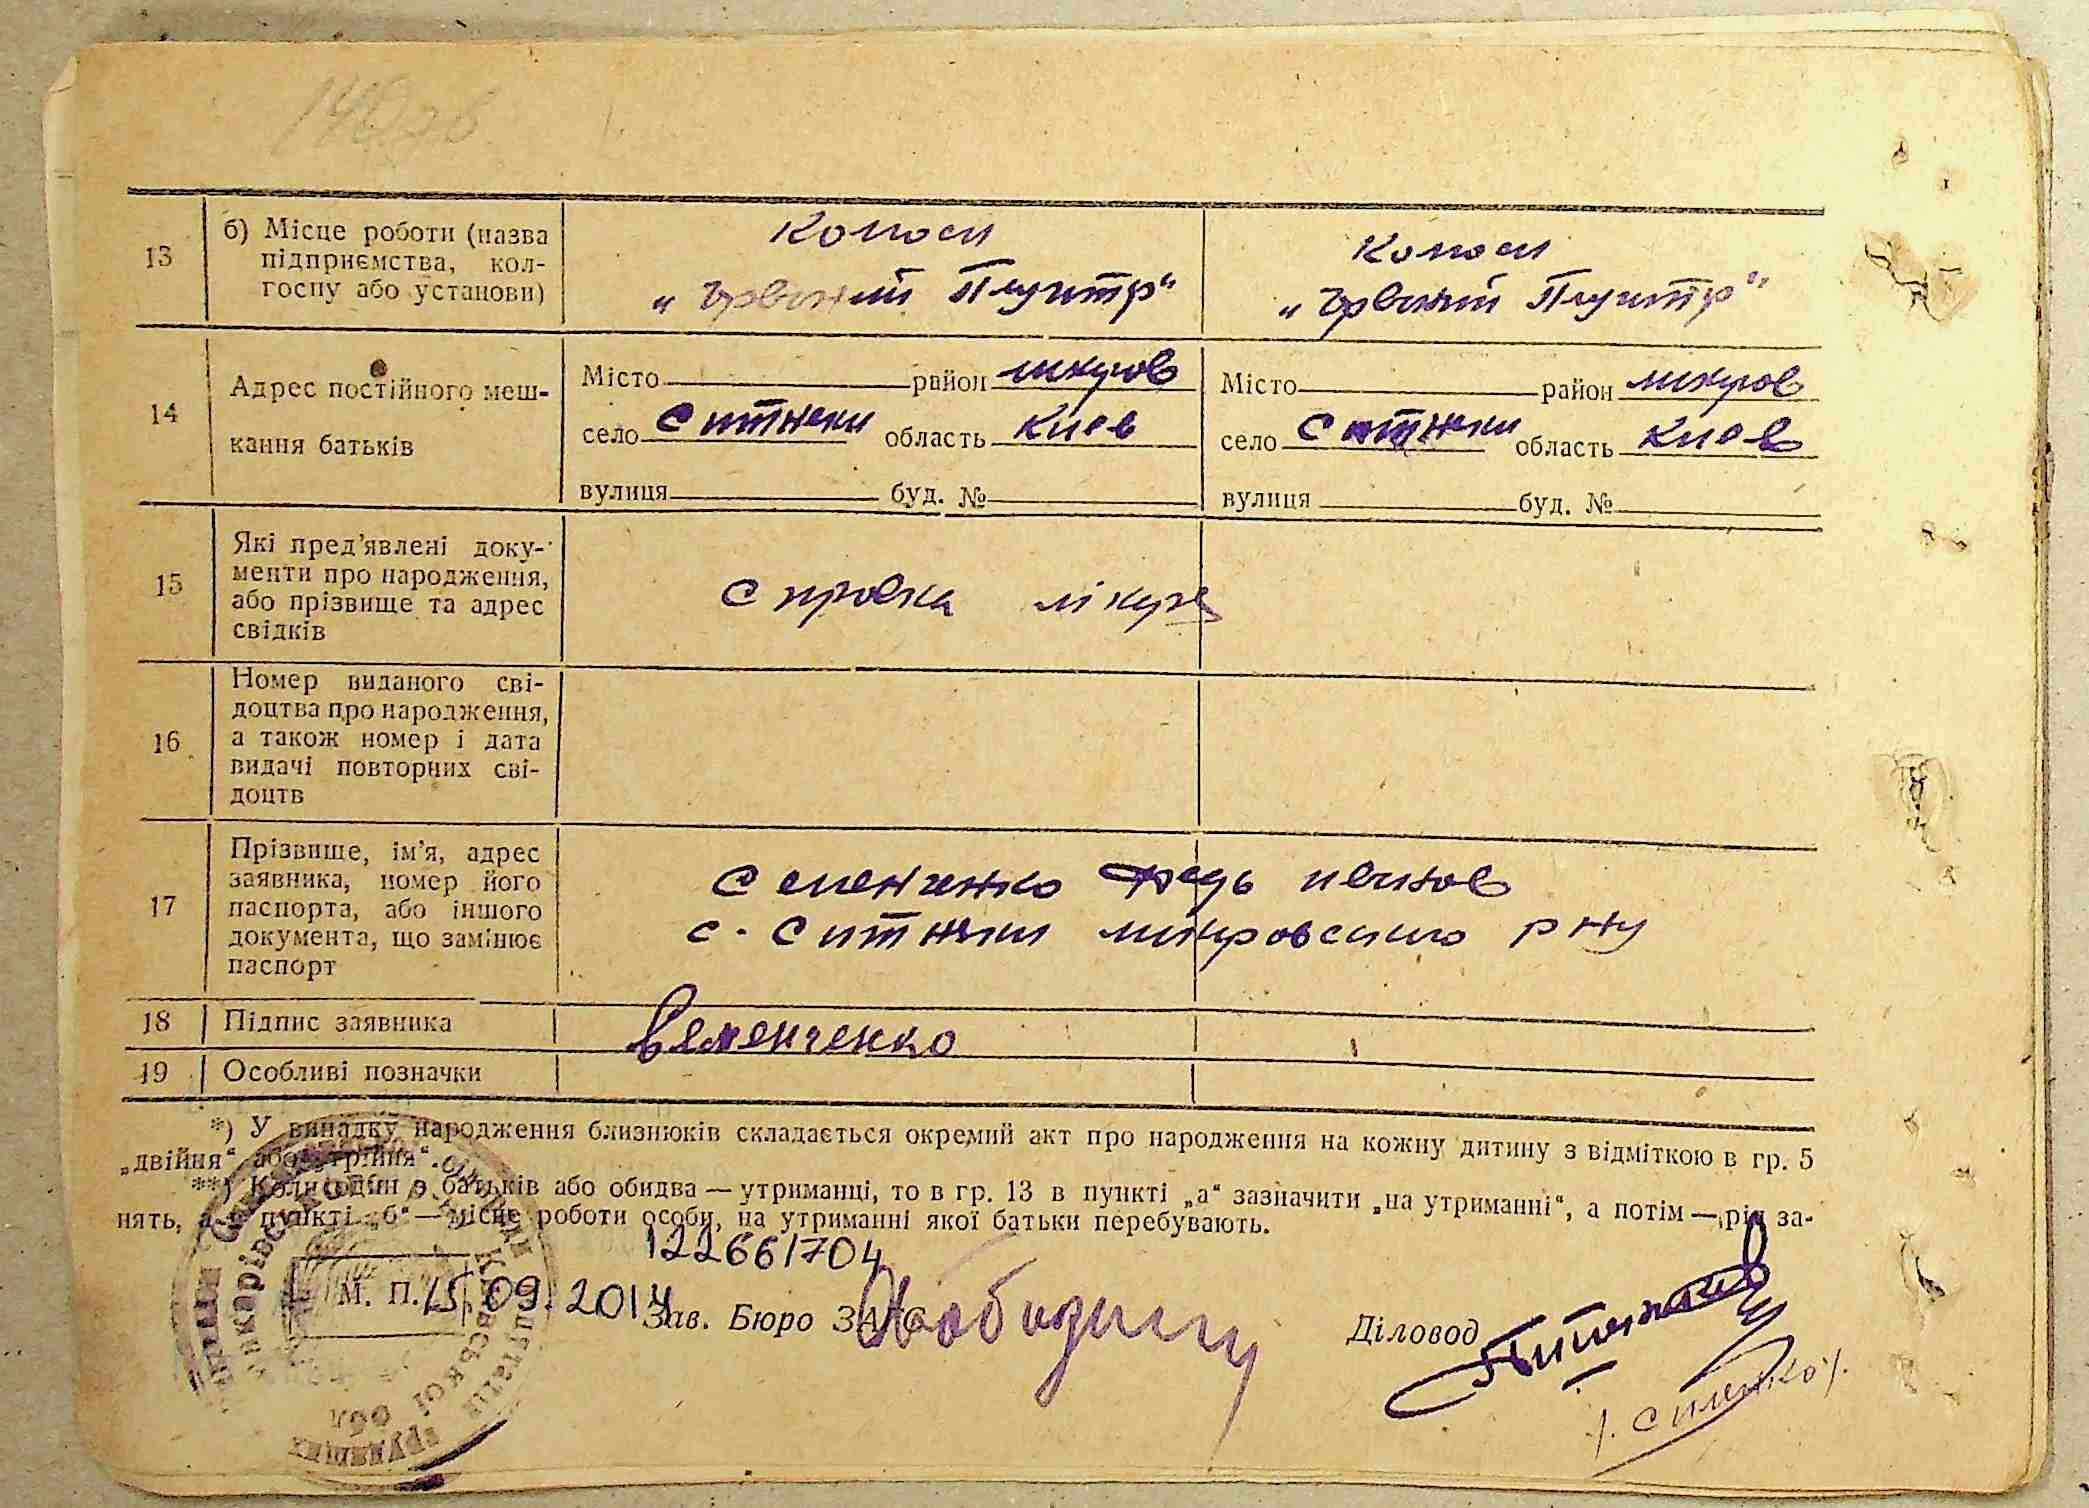 13
б) Місце роботи (назва
підприємства, кол-
госпу або установи)
колгосп
„Червоний Плугатр“
колгосп
„Червоний Плугатр“
14
Адрес постійного меш-
кання батьків
Місто район макаров
село Ситняки область Киев
вулиця буд. №
Місто район макаров
село Ситняки область Киев
вулиця буд. №
15
Які пред’явлені доку-
менти про народження,
або прізвище та адрес
свідків
справка лікаря
16
Номер виданого сві-
доцтва про народження,
а також номер і дата
видачі повторних сві-
доцтв
17
Прізвище, ім’я, адрес
заявника, номер його
паспорта, або іншого
документа, що замінює
паспорт
Семенченко
с. Ситняки макаровского рну
18
Підпис заявника
Семенченко
19
Особливі позначки
*) У випадку народження близнюків складається окремий акт про народження на кожну дитину з відміткою в гр. 5
„двійня“ або „трійня“.
**) Коли один з батьків або обидва — утриманці, то в гр. 13 в пункті „а“ зазначити „на утриманні“, а потім — рід за-
нять, а в пункті „б“ — місце роботи особи, на утриманні якої батьки перебувають.
122661704
М. П. 15.09.2014
Зав. Бюро ЗАГС
Діловод